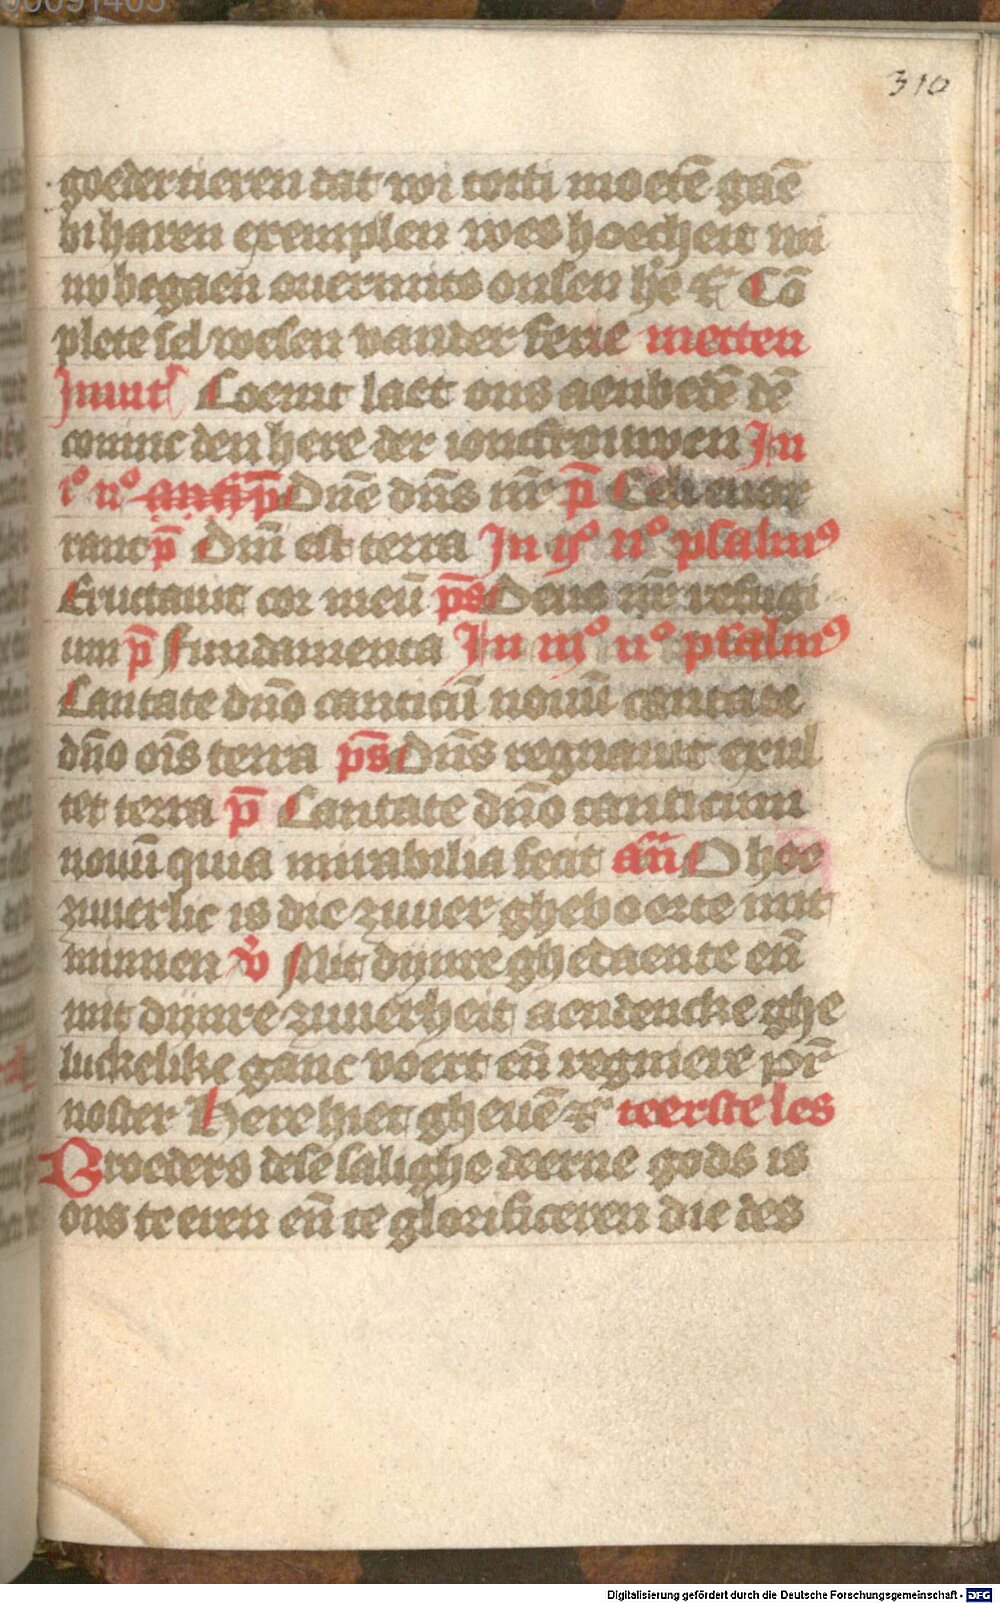 310
goedertieren dat wi totti moetē gaē
bi haren exemplen wes hoecheit wi
nv begaen ouermits onsen hē ⁊c Cō
plete sel wesen vander ferie metten
Coemt laet ons aenbedē dē
coninc den here der ioncfrouwen In
i° n° antf p̄ Dn̄e dn̄s nr̄ p̄ Celi enar
rant p̄ Dn̄i est terra In ij° n° psalmꝰ
Eructauit cor meū ps̄ Deus nr̄ refugi
um p̄ Fundamenta In iij° n° psalmꝰ
Cantate dn̄o canticū nouū cantate
dn̄o ois̄ terra ps̄ Dn̄s regnauit exul
tet terra p̄ Cantate dn̄o canticum
nouū quia mirabilia fecit an̄ O hoe
zuuerlic is die zuuer gheboerte mit
minnen v̊ Mit dijnre ghedaente en̄
mit dijnre zuuerheit aendencke ghe
luckelike ganc voert en̄ regniere pr̄
noster Here hiet gheuē ⁊c teerste les
Broeders dese salighe deerne gods is
ons te eren en̄ te glorificeren die des
Digitalisierung gefördert durch die Deutsche Forschungsgemeinschaft - DFG